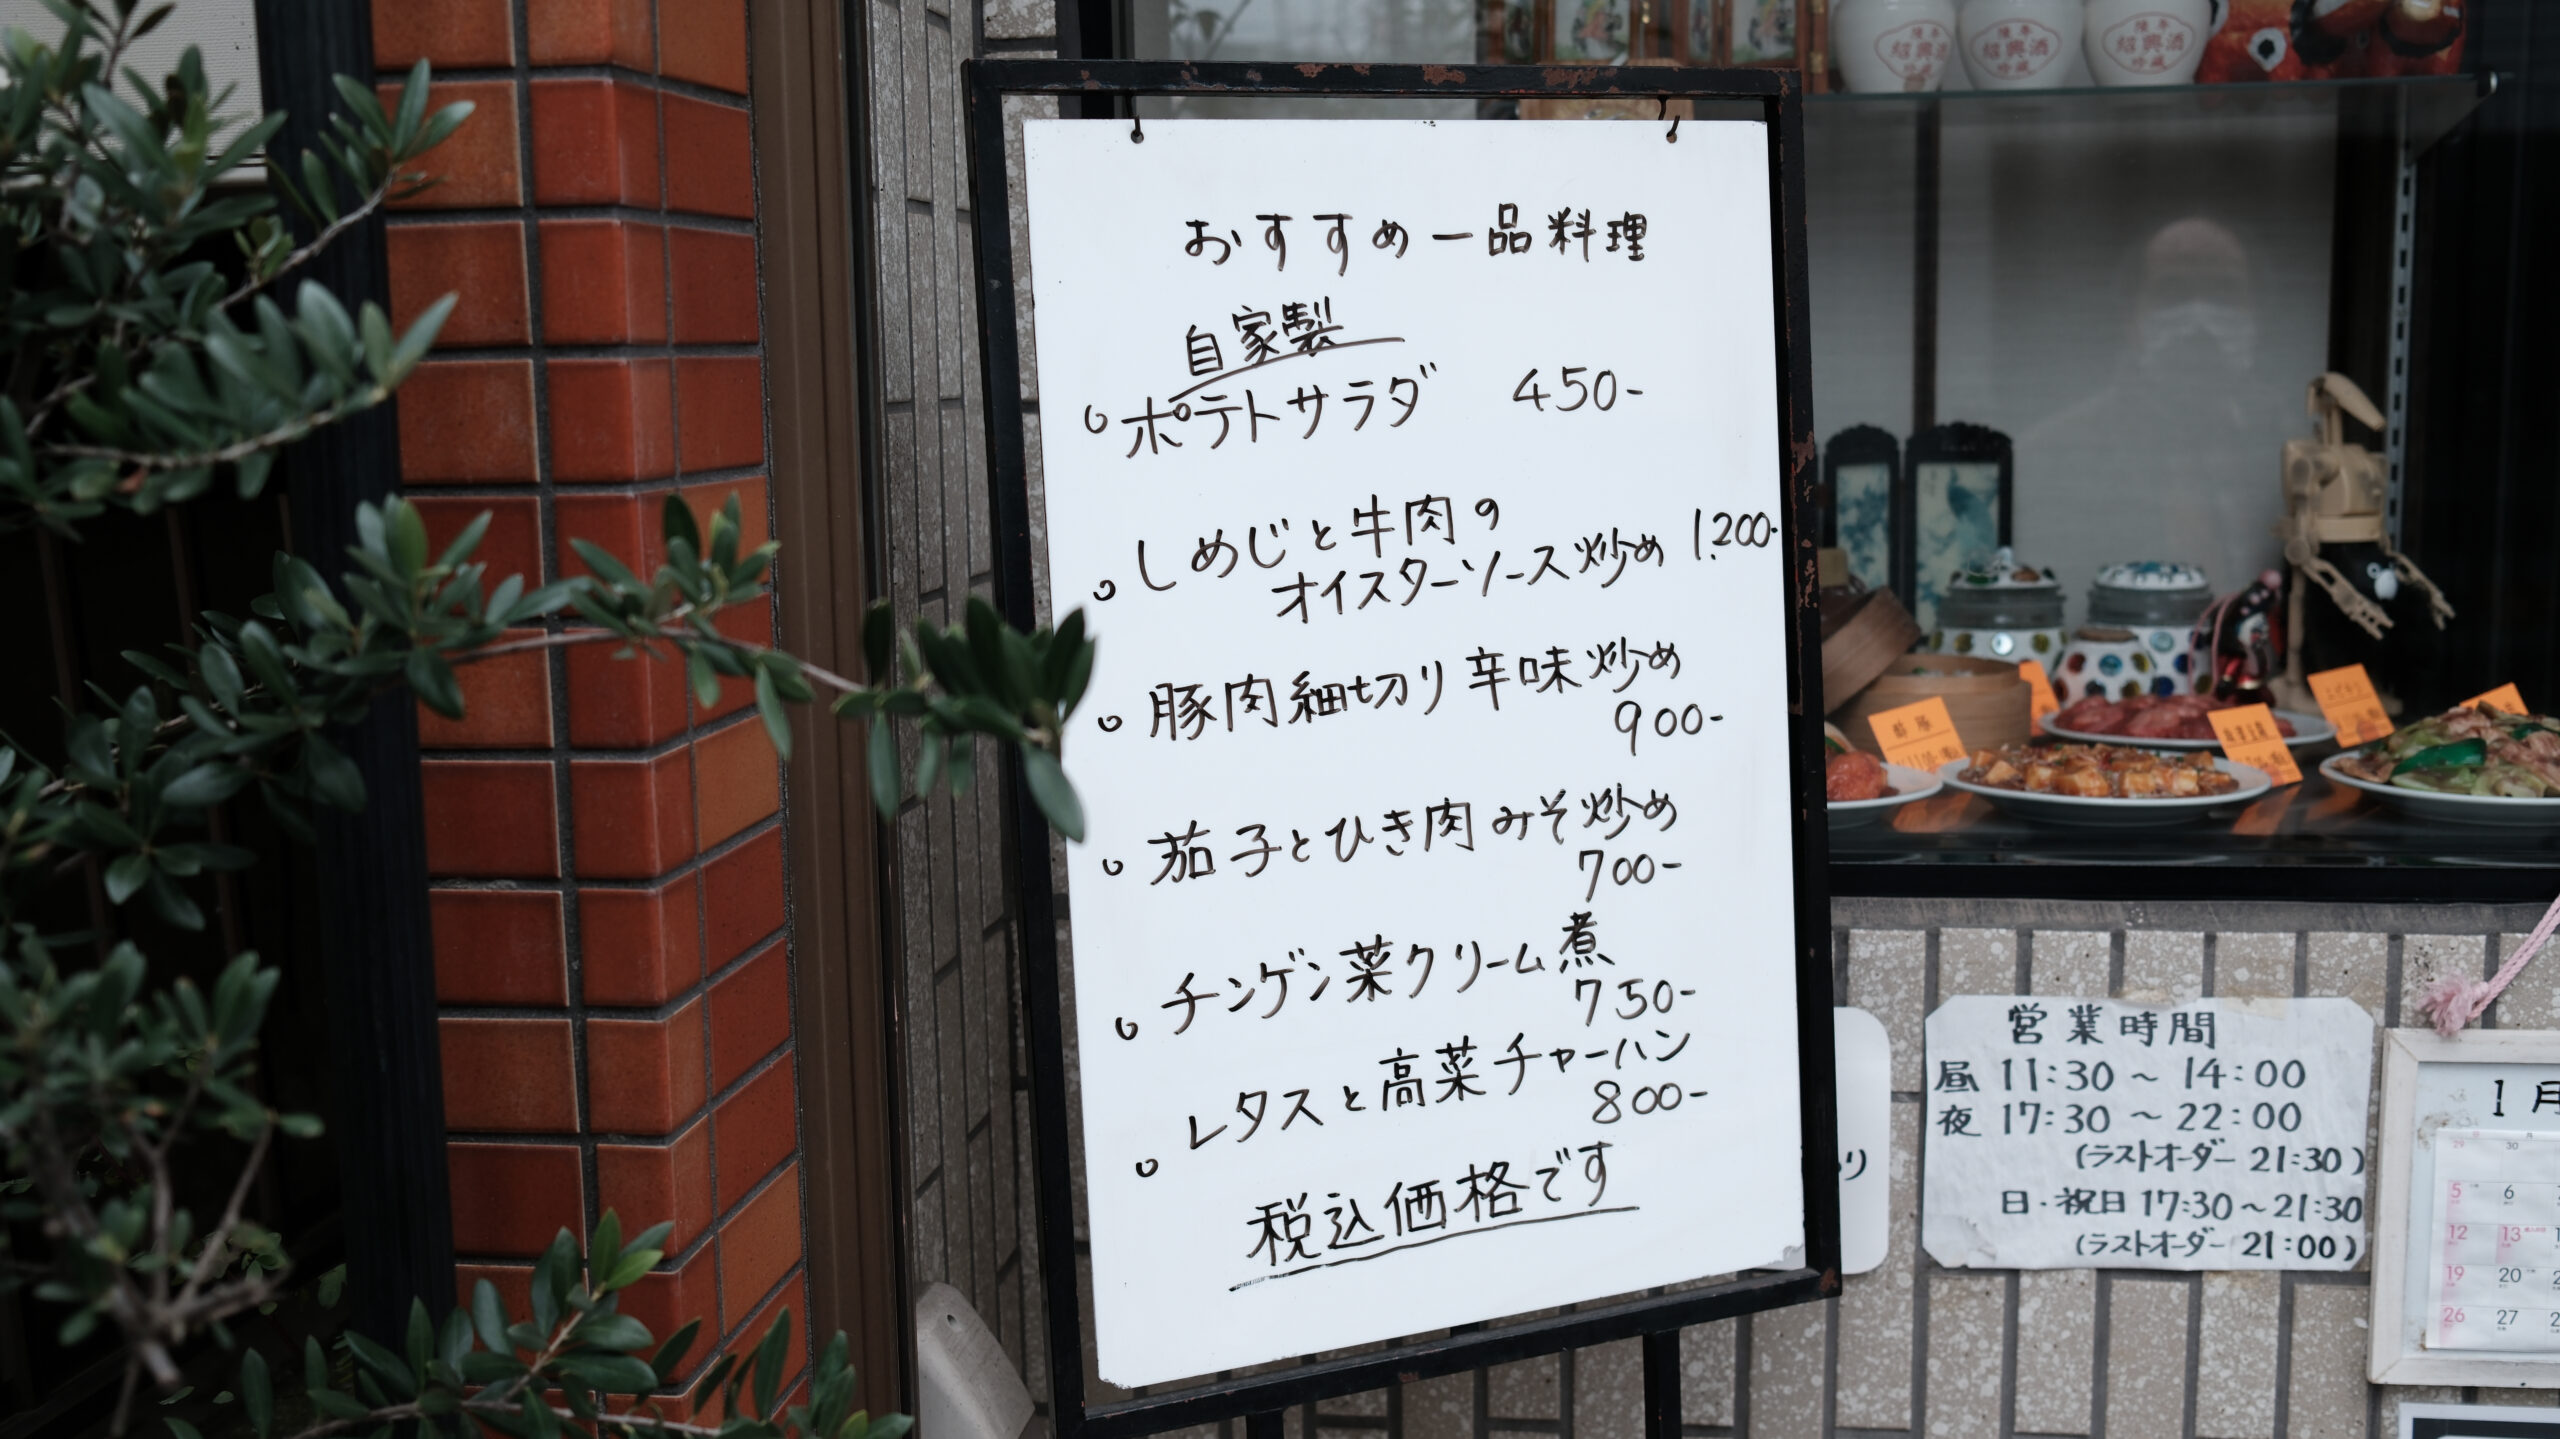 おすすめ一品料理
自家製
ポテトサラダ 450-
しめじと牛肉の
オイスターソース炒め 1,200-
豚肉細切り辛味炒め
900-
茄子とひき肉みそ炒め
700-
チンゲン菜クリーム煮
750-
レタスと高菜チャーハン
800-
税込価格です
紹興酒
紹興酒
紹興酒
酢豚
麻婆豆腐
営業時間
昼 11:30～14:00
夜 17:30～22:00
(ラストオーダー 21:30)
日・祝日 17:30～21:30
(ラストオーダー 21:00)
り
1月
29 30
5 6
12 13
19 20
26 27